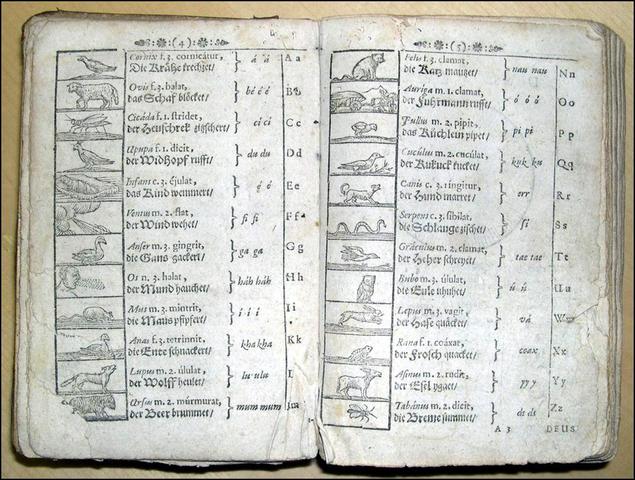 (4)
Cornix f. 3. cornicatur, á á A a
Die Krähe krechzet/
Ovis f. 3. balat, bé é é B b
das Schaf blöcket/
Cicáda f. 1. stridet, ci ci C c
der Heuschrek zitschert/
Upupa f. 1. dicit, du du D d
der Widhopf rufft/
Infans c. 3. éjulat, é é E e
das Kind wemmert/
Ventus m. 2. flat, fi fi F f
der Wind wehet/
Anser m. 3. gingrit, ga ga G g
die Gans gackert/
Os n. 3. halat, háh háh H h
der Mund hauchet/
Mus m. 3. mintrit, í í í I i
die Maus pfipfert/
Anas f. 3. tetrinnit, kha kha K k
die Ente schnackert/
Lupus m. 2. úlulat, lu ulu L
der Wolff heulet/
Ursus m. 2. múrmurat, mum mum M m
der Beer brummet/
(5)
Felis f. 3. clamat, nau nau N n
die Katz mauzet/
Auriga m. 1. clamat, ó ó ó O o
der Fuhrmann rufft/
Pullus m. 2. pipit, pi pi P p
das Küchlein pipet/
Cucúlus m. 2. cucúlat, kuk ku Q q
der Kukuck kucket/
Canis c. 3. ringitur, err R r
der Hund marret/
Serpens c. 3. sibilat, si S s
die Schlange zischet/
Gráculus m. 2. clamat, tae tae T t
der Heher schreyet/
Bubo m. 3. úlulat, ú ú U u
die Eule uhuhet/
Lepus m. 3. vagit, vá W w
der Hase quäcket/
Rana f. 1. coáxat, coax X x
der Frosch quacket/
Asinus m. 2. rudit, y y y Y y
der Esel ygaet/
Tabánus m. 2. dicit, ds ds Z z
die Breme summet/
A 3 DEUS